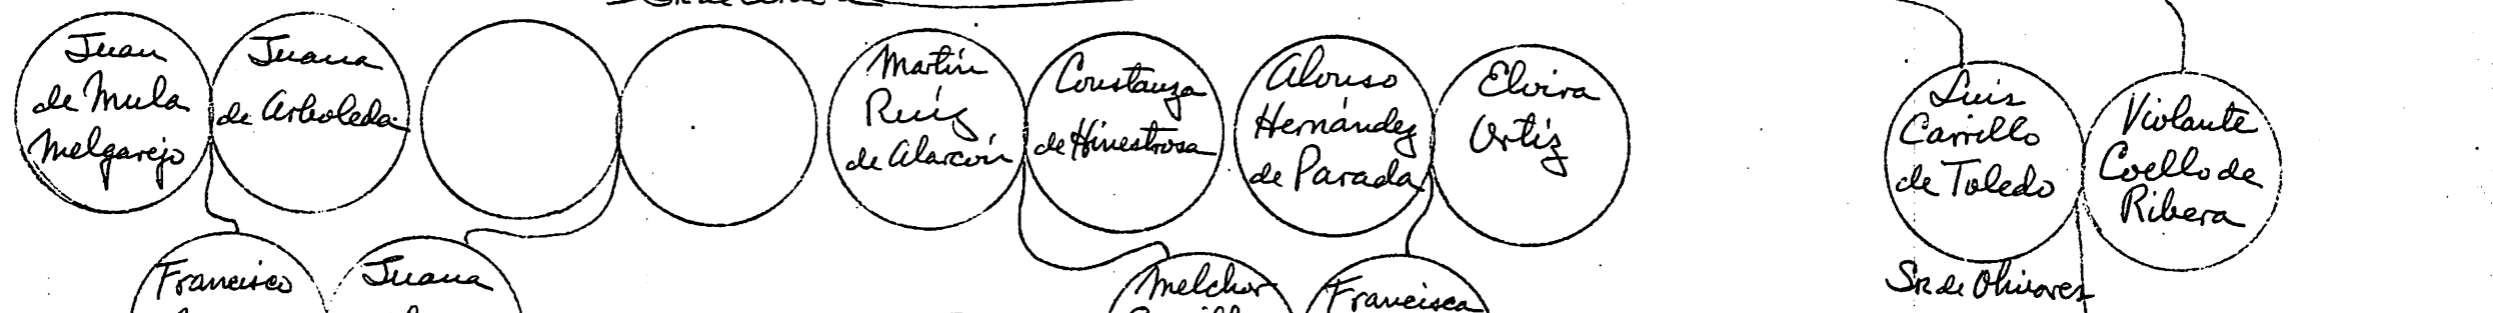 Juan
de Mula
Melgarejo
Juana
de Arboleda
Martín
Ruíz
de Alarcón
Constanza
de Hinestrosa
Alonso
Hernández
de Parada
Elvira
Ortíz
Luis
Carrillo
de Toledo
Violante
Coello de
Ribera
Sr. de Olivares
Francisco
Juana
Melchor
Francisca